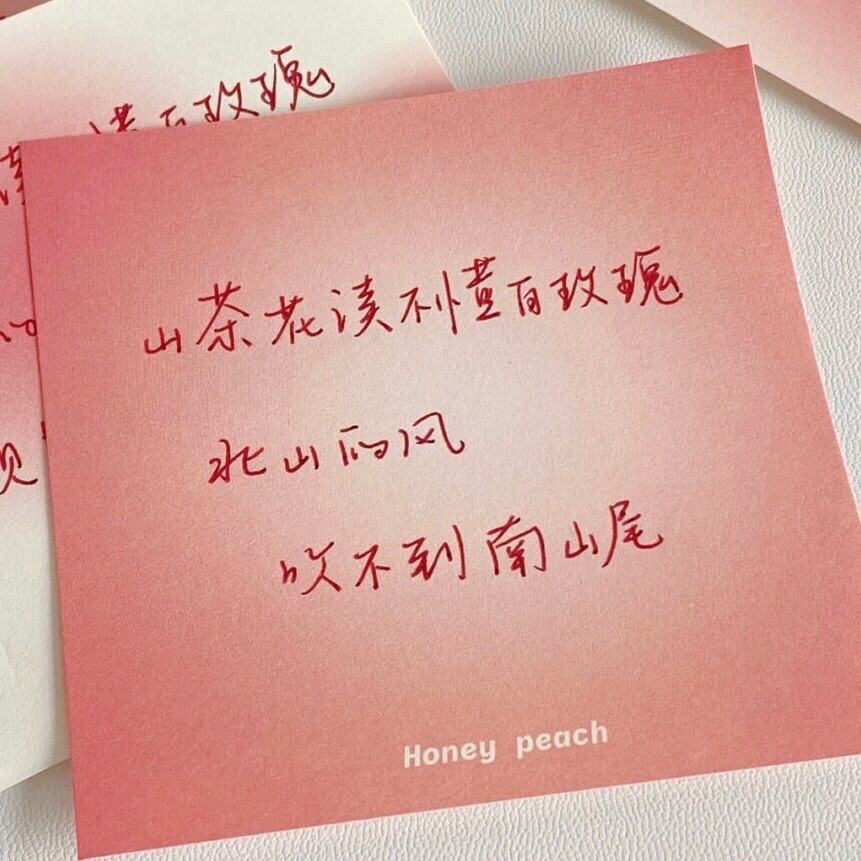 白玫瑰
山茶花读不懂白玫瑰
北山的风
吹不到南山尾
Honey peach